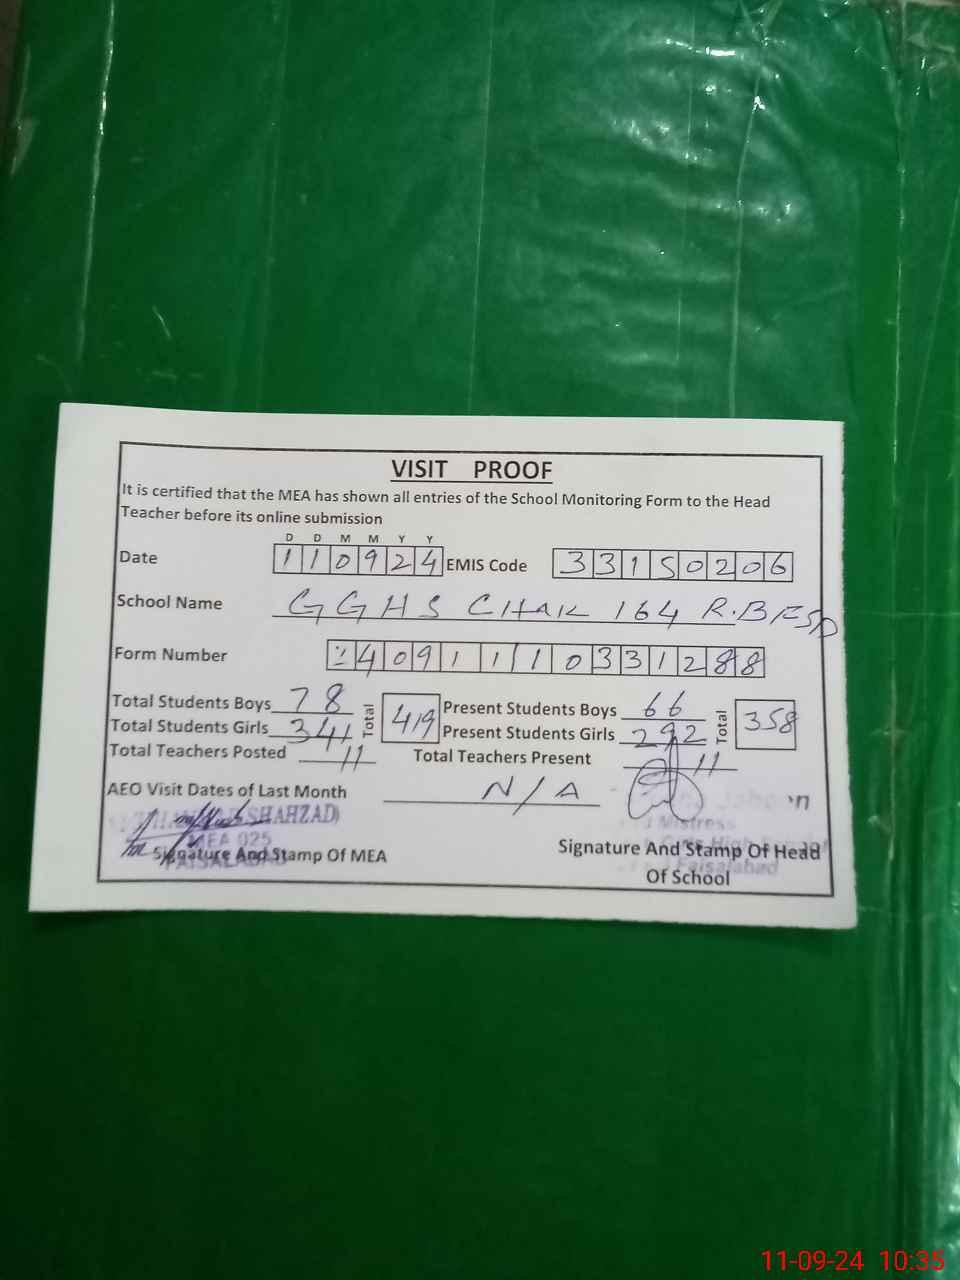 VISIT PROOF
It is certified that the MEA has shown all entries of the School Monitoring Form to the Head
Teacher before its online submission
D D M M Y Y
Date 110924 EMIS Code 33150206
School Name GGHS CHAK 164 R.B FSD
Form Number 40911110331288
Total Students Boys 78 Total 419 Present Students Boys 66 Total 358
Total Students Girls 341 Present Students Girls 292
Total Teachers Posted 11 Total Teachers Present 11
AEO Visit Dates of Last Month N/A
SHAHZAD)
MEA 025
FAISALABAD
Signature And Stamp Of MEA
Mistress
Girls High
Faisalabad
Signature And Stamp Of Head
Of School
11-09-24 10:35